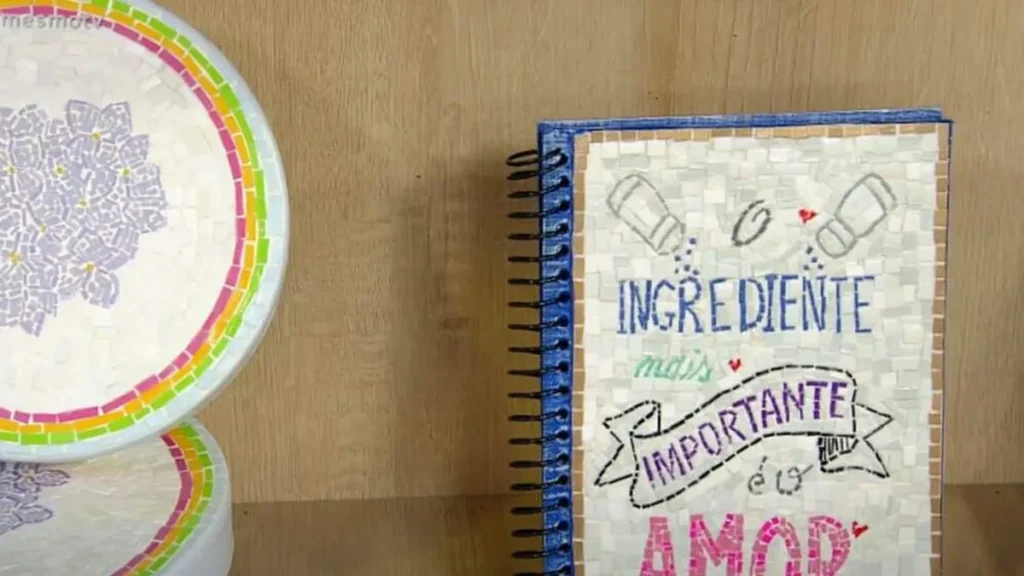 mesmotv
O
INGREDIENTE
mais
IMPORTANTE
é o
AMOR